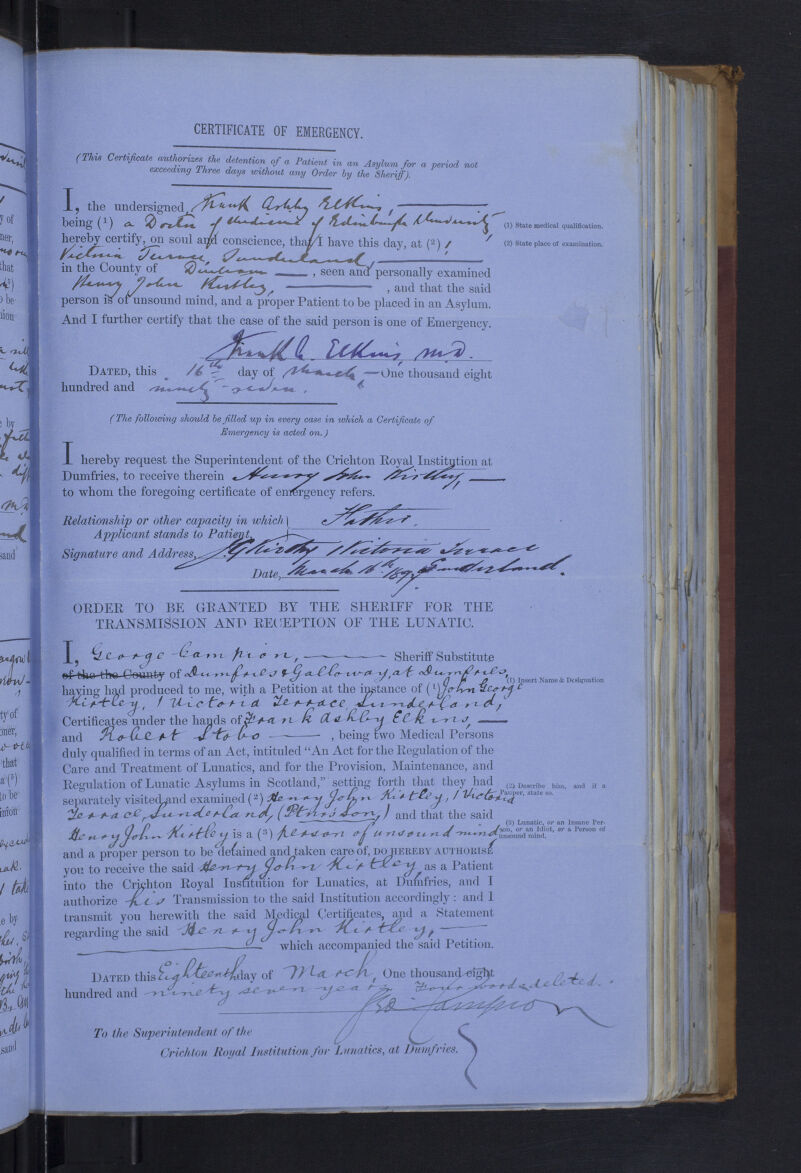 CERTIFICATE OF EMERGENCY.
(This Certificate authorizes the detention of a Patient in an Asylum for a period not
exceeding Three days without any Order by the Sheriff).
I, the undersigned Frank Ashby Elkins,
being (1) a Doctor of Medicine of Edinburgh University
(1) State medical qualification.
hereby certify, on soul and conscience, that I have this day, at (2) 1
(2) State place of examination.
Victoria Terrace, Sunderland,
in the County of Durham, seen and personally examined
Henry John Kirtley, , and that the said
person is of unsound mind, and a proper Patient to be placed in an Asylum.
And I further certify that the case of the said person is one of Emergency.
Frank A. Elkins, M.D.
DATED, this 16th day of March One thousand eight
hundred and ninety-seven.
(The following should be filled up in every case in which a Certificate of
Emergency is acted on.)
I hereby request the Superintendent of the Crichton Royal Institution at
Dumfries, to receive therein Henry John Kirtley,
to whom the foregoing certificate of emergency refers.
Relationship or other capacity in which
Applicant stands to Patient, Father.
Signature and Address, J G Kirtley 1 Victoria Terrace
Date, March 16th 1897 Sunderland.
ORDER TO BE GRANTED BY THE SHERIFF FOR THE
TRANSMISSION AND RECEPTION OF THE LUNATIC.
I, George Campion, Sheriff Substitute
of the the County of Dumfries & Galloway, at Dumfries,
(1) Insert Name & Designation
having had produced to me, with a Petition at the instance of (1) John George
Kirtley, 1 Victoria Terrace, Sunderland,
Certificates under the hands of Frank Ashby Elkins,
and Robert Stobo , being two Medical Persons
duly qualified in terms of an Act, intituled "An Act for the Regulation of the
Care and Treatment of Lunatics, and for the Provision, Maintenance, and
Regulation of Lunatic Asylums in Scotland," setting forth that they had
(2) Describe him, and if a
Pauper, state so.
separately visited and examined (2) Henry John Kirtley, 1 Victoria
Terrace, Sunderland, and that the said
(3) Lunatic, or an Insane Per-
son, or an Idiot, or a Person of
unsound mind.
Henry John Kirtley is a (3) person of unsound mind
and a proper person to be detained and taken care of, DO HEREBY AUTHORISE
you to receive the said Henry John Kirtley as a Patient
into the Crichton Royal Institution for Lunatics, at Dumfries, and I
authorize his Transmission to the said Institution accordingly: and I
transmit you herewith the said Medical Certificates, and a Statement
regarding the said Henry John Kirtley,
which accompanied the said Petition.
DATED this Eighteenth day of March, One thousand eight
hundred and ninety seven years Four words deleted.
Geo Campion
To the Superintendent of the
Crichton Royal Institution for Lunatics, at Dumfries.